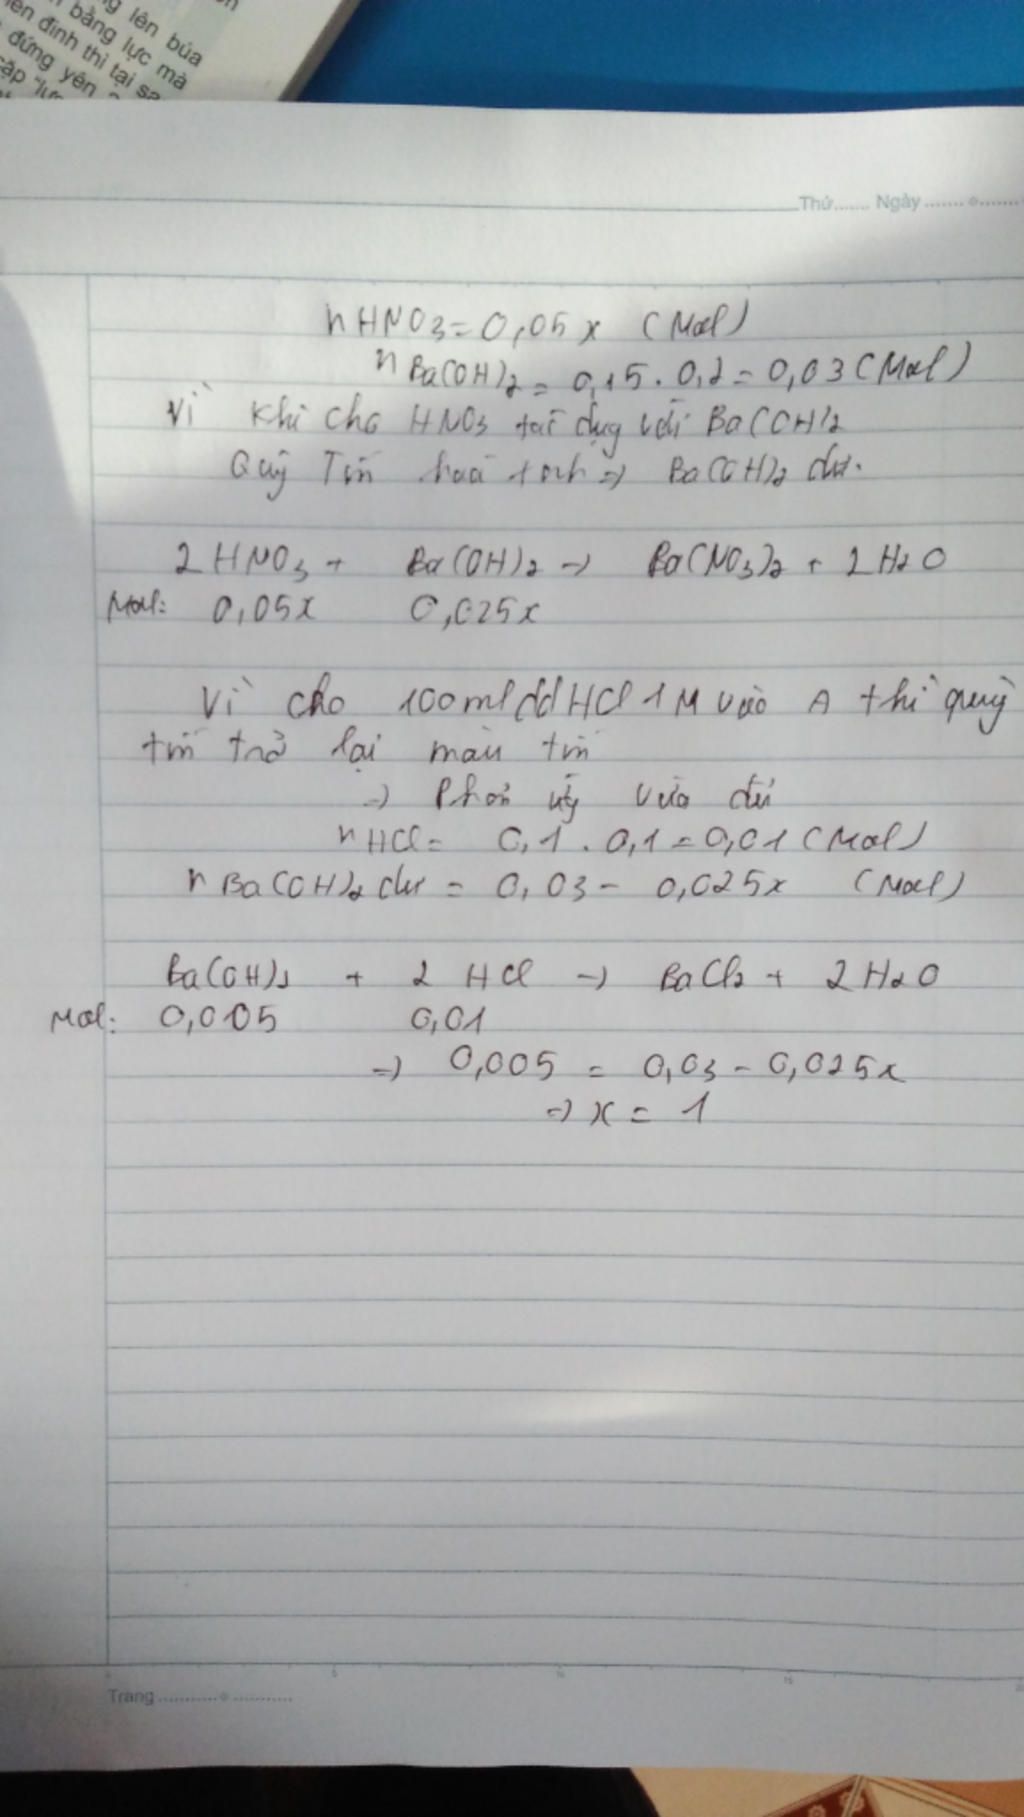 g lên búa
bằng lực mà
đinh thì tại sa
đứng yên
cặp "lự
Thứ....... Ngày
nHNO3 = 0,05x (Mol)
nBa(OH)2 = 0,15 . 0,2 = 0,03 (Mol)
Vì khi cho HNO3 tác dụng với Ba(OH)2
Quỳ Tím hoá xanh => Ba(OH)2 dư.
2HNO3 + Ba(OH)2 -> Ba(NO3)2 + 2H2O
Mol: 0,05x 0,025x
Vì cho 100ml dd HCl 1M vào A thì quỳ
tím trở lại màu tím
=> Phản ứng vừa đủ
nHCl = 0,1 . 0,1 = 0,01 (Mol)
nBa(OH)2 dư = 0,03 - 0,025x (Mol)
Ba(OH)2 + 2HCl -> BaCl2 + 2H2O
Mol: 0,005 0,01
=> 0,005 = 0,03 - 0,025x
=> x = 1
Trang